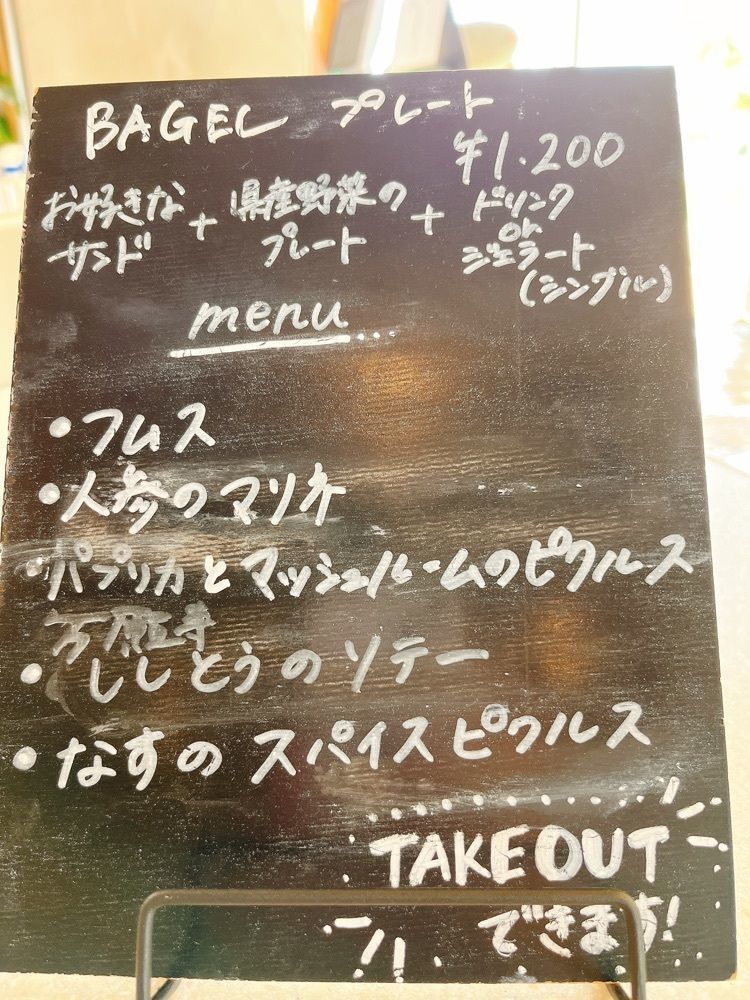 BAGEL プレート
¥1.200
お好きな サンド + 県産野菜の プレート + ドリンク or ジェラート (シングル)
menu...
・フムス
・人参のマリネ
・パプリカとマッシュルームのピクルス
万願寺
・ししとうのソテー
・なすのスパイスピクルス
TAKE OUT
できます!